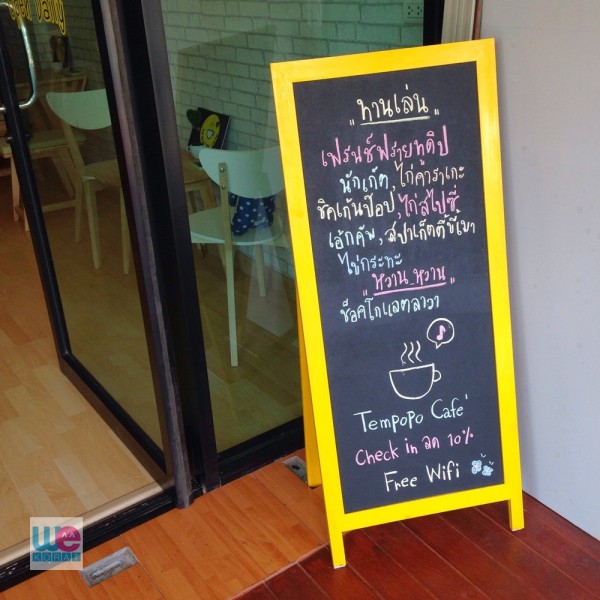 "ทานเล่น"
เฟรนช์ฟรายทูดิป
นักเก็ต, ไก่คาราเกะ
ชิคเก้นป๊อป, ไก่สไปซี่
เอ้กคัพ, สปาเก็ตตี้ขี้เมา
ไข่กระทะ
"หวาน หวาน"
ช็อคโกแลตลาวา
Tempopo Café
Check in ลด 10%
Free Wifi
we
KORAT